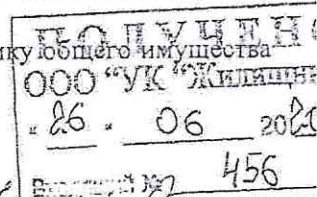 ПОЛУЧЕНО
ику общего имущества
ООО "УК "Жилищн
" 26 " 06 2020
№ 456